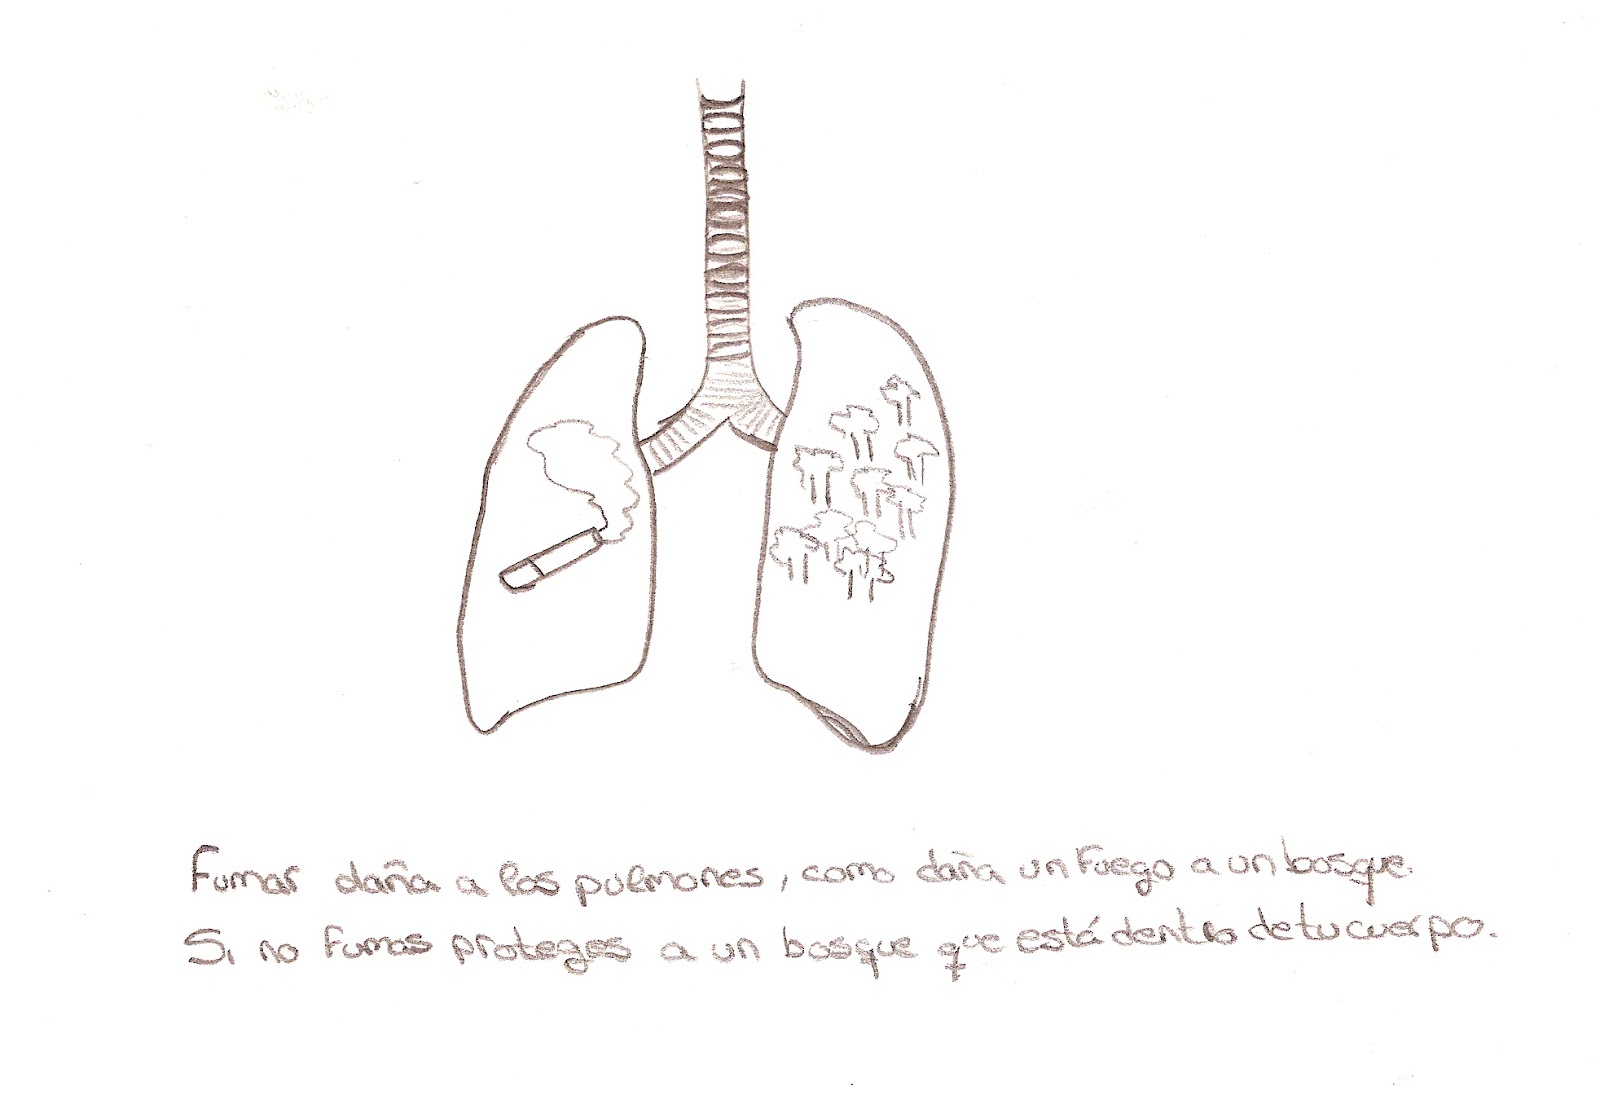 Fumar daña a los pulmones, como daña un fuego a un bosque.
Si no fumas proteges a un bosque que está dentro de tu cuerpo.